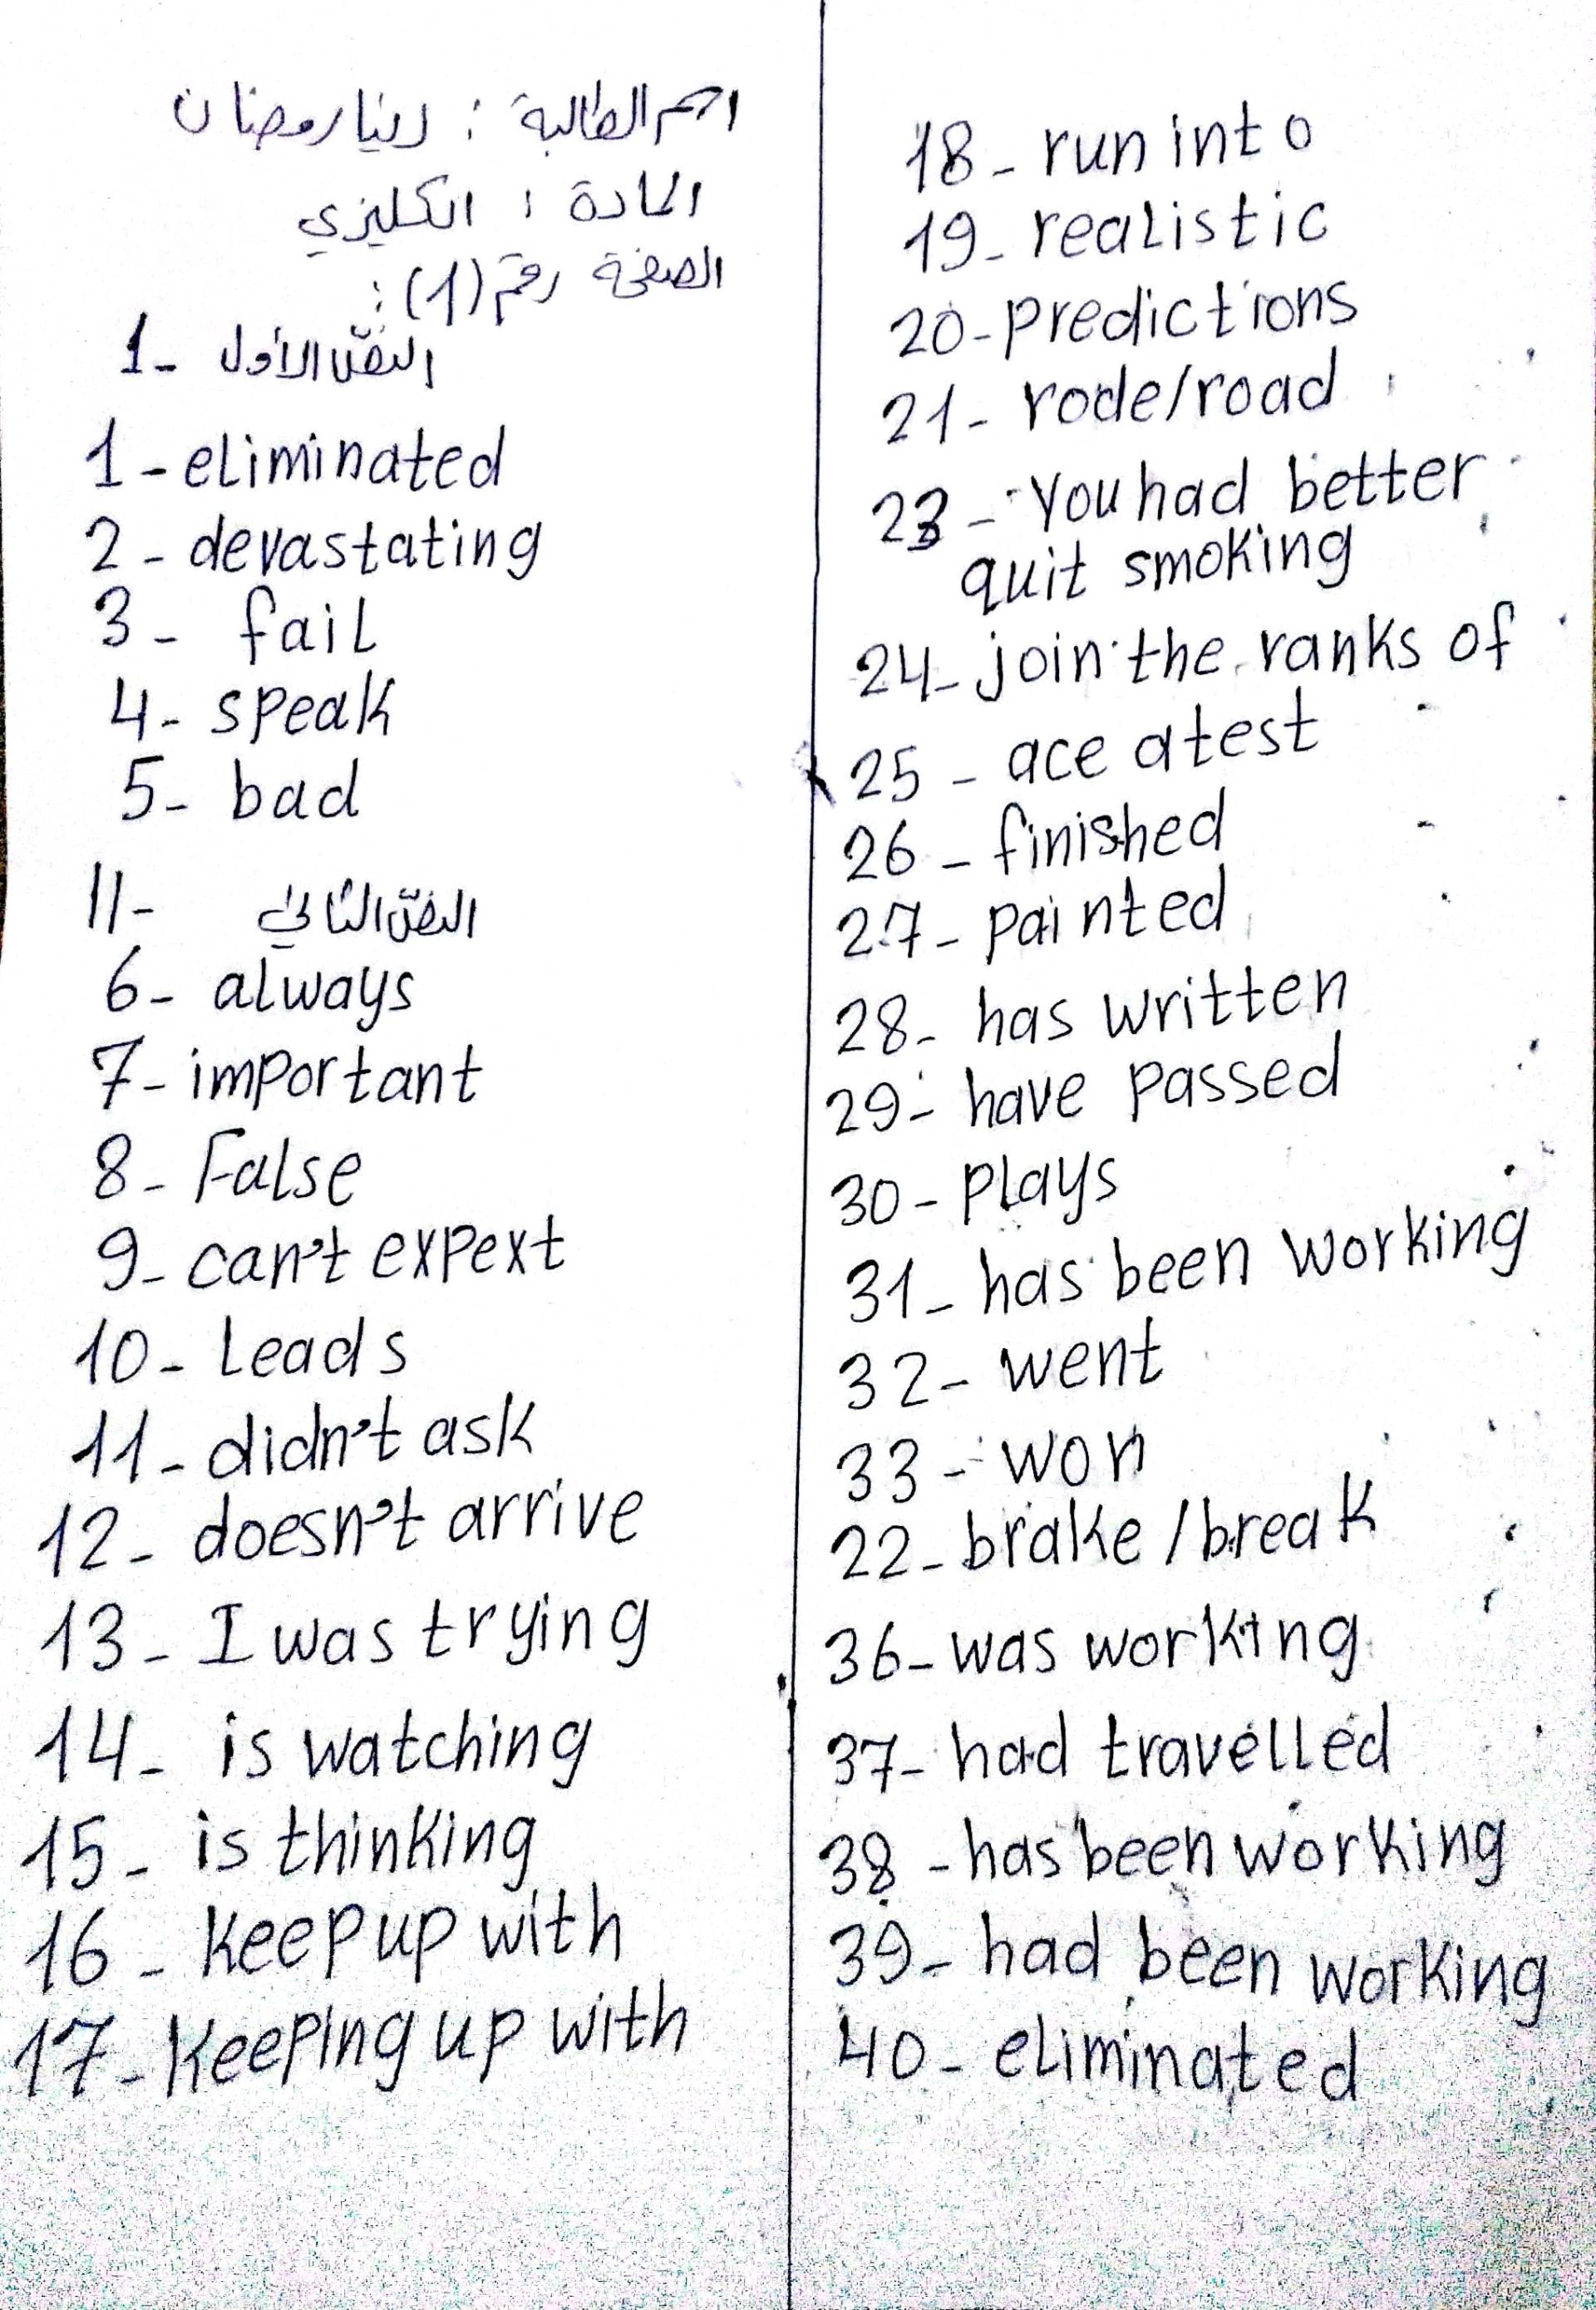 اسم الطالبة : رينا رمضان
المادة : انكليزي
الصفحة رقم (1) :
1- النصّ الأول
1- eliminated
2- devastating
3- fail
4- speak
5- bad
II- النصّ الثاني
6- always
7- important
8- False
9- can't expext
10- Leads
11- didn't ask
12- doesn't arrive
13- I was trying
14- is watching
15- is thinking
16- keep up with
17- Keeping up with
18- run into
19- realistic
20- predictions
21- rode/road
23- You had better
quit smoking
24- join the ranks of
25- ace a test
26- finished
27- painted
28- has written
29- have passed
30- plays
31- has been working
32- went
33- won
22- brake / break
36- was working
37- had travelled
38- has been working
39- had been working
40- eliminated